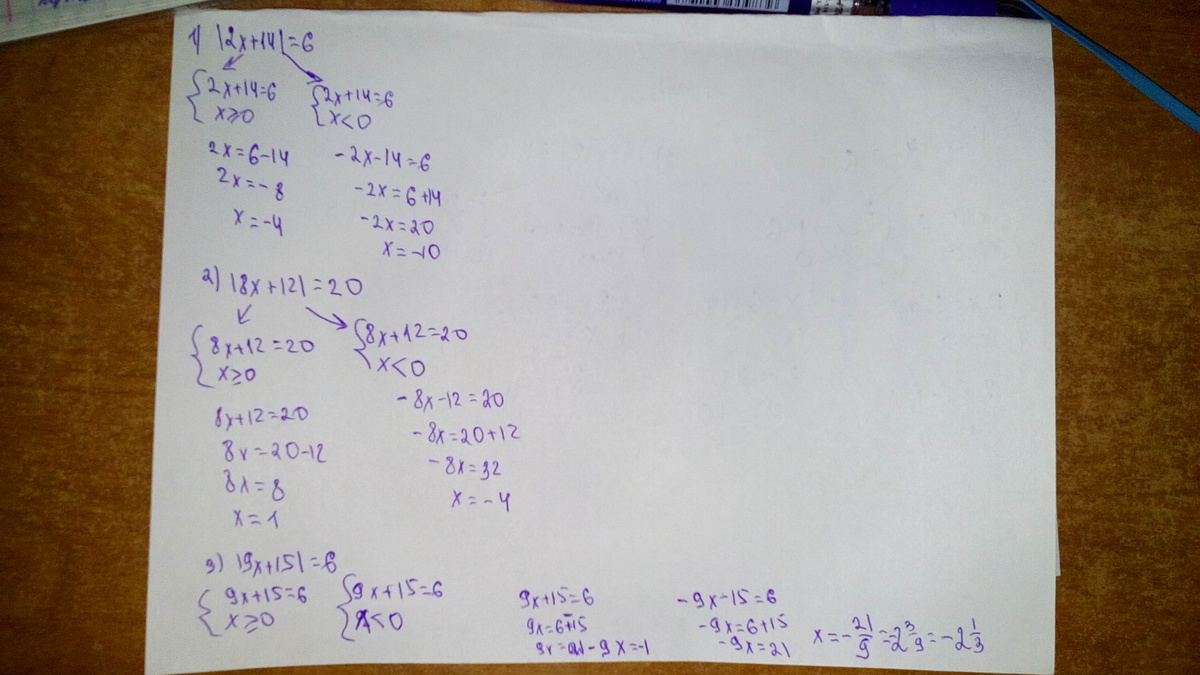 1) |2x+14|=6
{2x+14=6
x≥0
{2x+14=6
x<0
2x=6-14
2x=-8
x=-4
-2x-14=6
-2x=6+14
-2x=20
x=-10
2) |8x+12|=20
{8x+12=20
x≥0
{8x+12=20
x<0
8x+12=20
8x=20-12
8x=8
x=1
-8x-12=20
-8x=20+12
-8x=32
x=-4
3) |9x+15|=6
{9x+15=6
x≥0
{9x+15=6
x<0
9x+15=6
9x=6-15
9x=-9 x=-1
-9x-15=6
-9x=6+15
-9x=21
x=-21/9=-2 3/9=-2 1/3